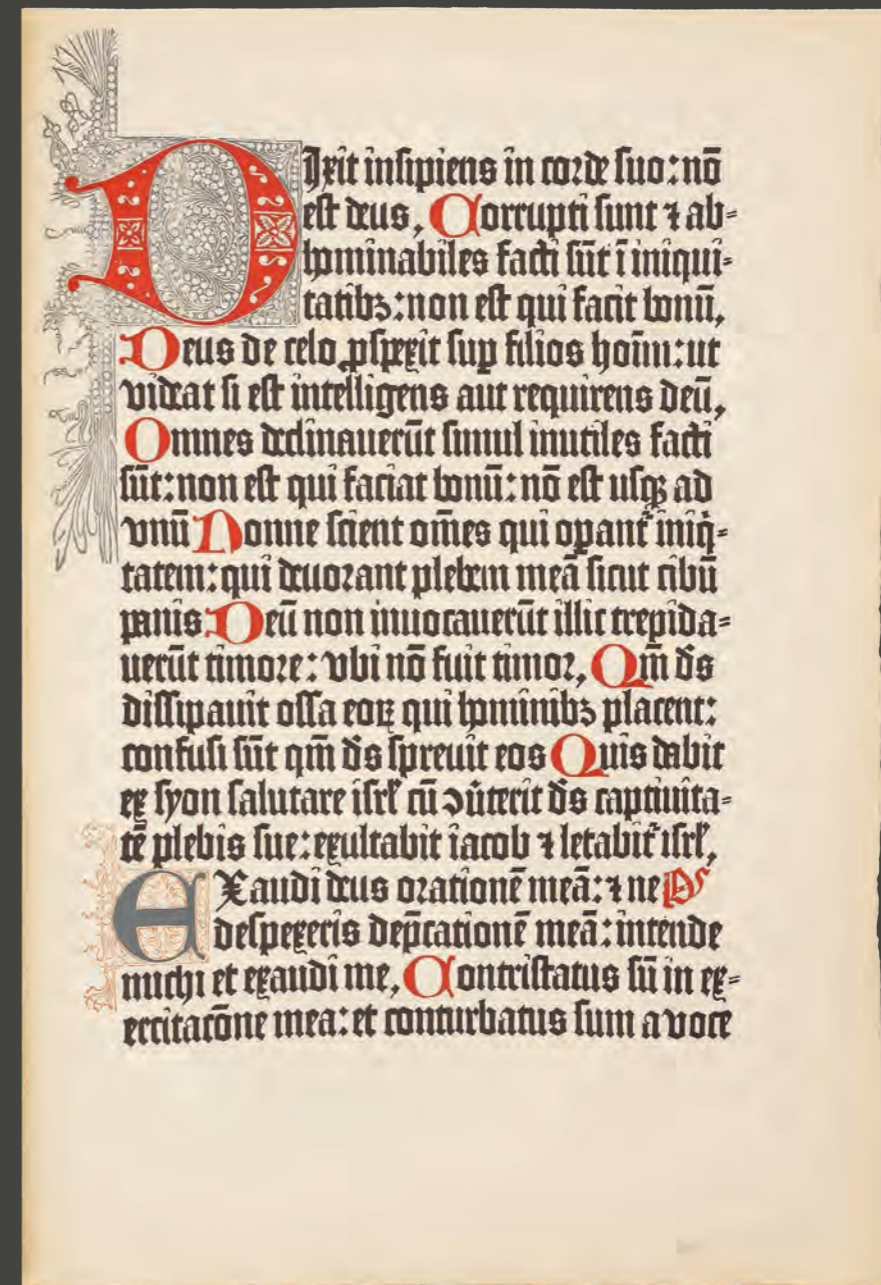 DIxit insipiens in corde suo: nō
est deus, Corrupti sunt ⁊ ab=
hominabiles facti sūt ī iniqui=
tatibꝫ: non est qui facit bonū,
Deus de celo ꝓspexit suꝑ filios hoīm: ut
videat si est intelligens aut requirens deū,
Omnes declinauerūt simul inutiles facti
sūt: non est qui faciat bonū: nō est usqꝫ ad
vnū Nonne scient om̄es qui oꝑant᷑ iniq̇=
tatem: qui deuorant plebem meā sicut cibū
panis Deū non inuocauerūt illic trepida=
uerūt timore: vbi nō fuit timor, Qm̄ d̄s
dissipauit ossa eoꝝ qui hominibꝫ placent:
confusi sūt qm̄ d̄s spreuit eos Quis dabit
ex syon salutare isrl̄ cū ↄ̄uterit d̄s captiuita=
tē plebis sue: exultabit iacob ⁊ letabit᷑ isrl̄,
EXaudi deus orationē meā: ⁊ ne p̄s
despexeris dep̄cationē meā: intende
michi et exaudi me, Contristatus sū in ex=
ercitacōne mea: et conturbatus sum a voce